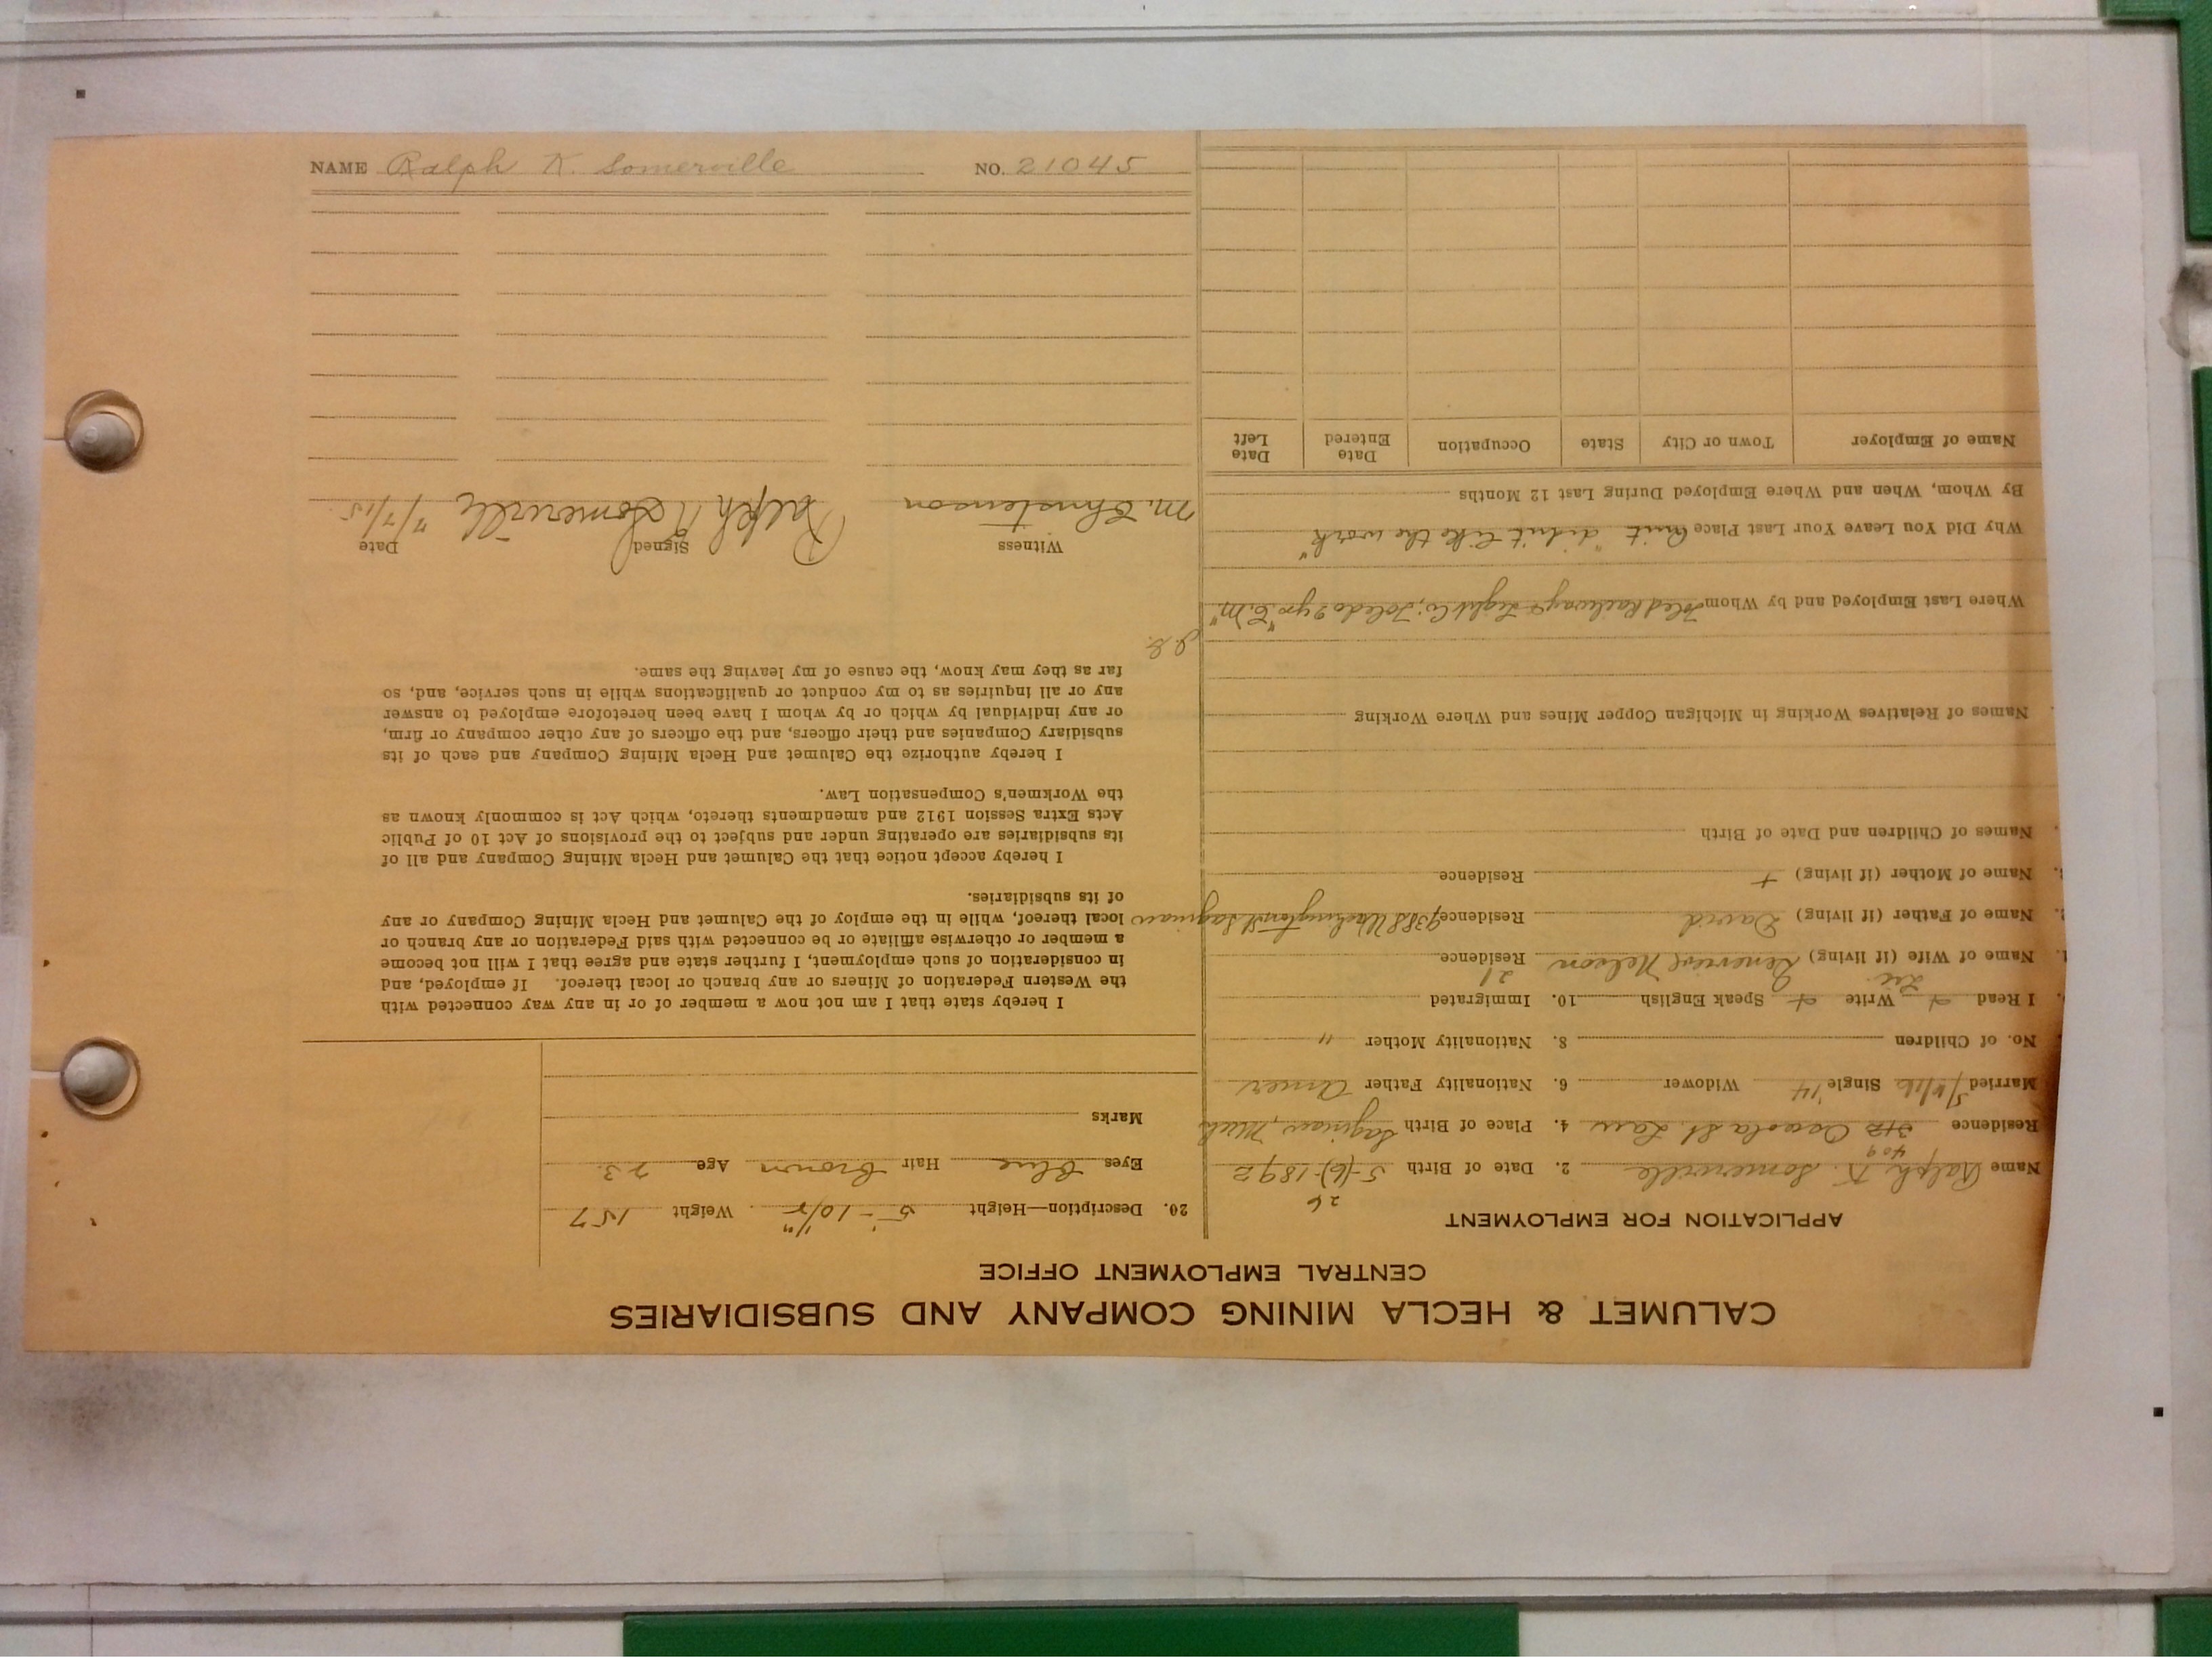 CALUMET & HECLA MINING COMPANY AND SUBSIDIARIES
CENTRAL EMPLOYMENT OFFICE
APPLICATION FOR EMPLOYMENT
26
Name Ralph K. Somerville 2. Date of Birth 5-(6)-1892
409
Residence 312 Osceola St. Laur 4. Place of Birth Saginaw, Mich
Married 5/4/16 Single '14 Widower 6. Nationality Father Amer
No. of Children 8. Nationality Mother "
I Read + Write + Speak English 10. Immigrated
21
Name of Wife (if living) Genevieve Nelson Residence
2. Name of Father (if living) David Residence 938 S Washington St Saginaw
3. Name of Mother (if living) + Residence
Names of Children and Date of Birth
Names of Relatives Working in Michigan Copper Mines and Where Working
Where Last Employed and by Whom Toled Railways & Light Co; Toledo 2 yrs "E.M"
Why Did You Leave Your Last Place Quit "didn't like the work"
By Whom, When and Where Employed During Last 12 Months
Name of Employer Town or City State Occupation Date Entered Date Left
20. Description—Height 5'-10½" Weight 157
Eyes Blue Hair Brown Age 23
Marks
I hereby state that I am not now a member of or in any way connected with
the Western Federation of Miners or any branch or local thereof. If employed, and
in consideration of such employment, I further state and agree that I will not become
a member or otherwise affiliate or be connected with said Federation or any branch or
local thereof, while in the employ of the Calumet and Hecla Mining Company or any
of its subsidiaries.
I hereby accept notice that the Calumet and Hecla Mining Company and all of
its subsidiaries are operating under and subject to the provisions of Act 10 of Public
Acts Extra Session 1912 and amendments thereto, which Act is commonly known as
the Workmen's Compensation Law.
I hereby authorize the Calumet and Hecla Mining Company and each of its
subsidiary Companies and their officers, and the officers of any other company or firm,
or any individual by which or by whom I have been heretofore employed to answer
any or all inquiries as to my conduct or qualifications while in such service, and, so
far as they may know, the cause of my leaving the same.
Witness Signed Date
M. Christenson Ralph K Somerville 7/7/15
NAME Ralph K. Somerville NO. 21045